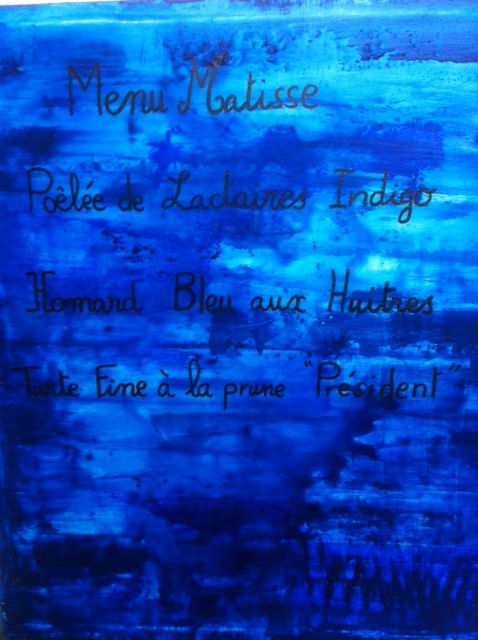 Menu Matisse
Poêlée de Lactaires Indigo
Homard Bleu aux Huitres
Tarte Fine à la prune "Président"